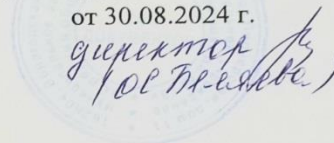 от 30.08.2024 г.
директор
(О.С. Беляева)